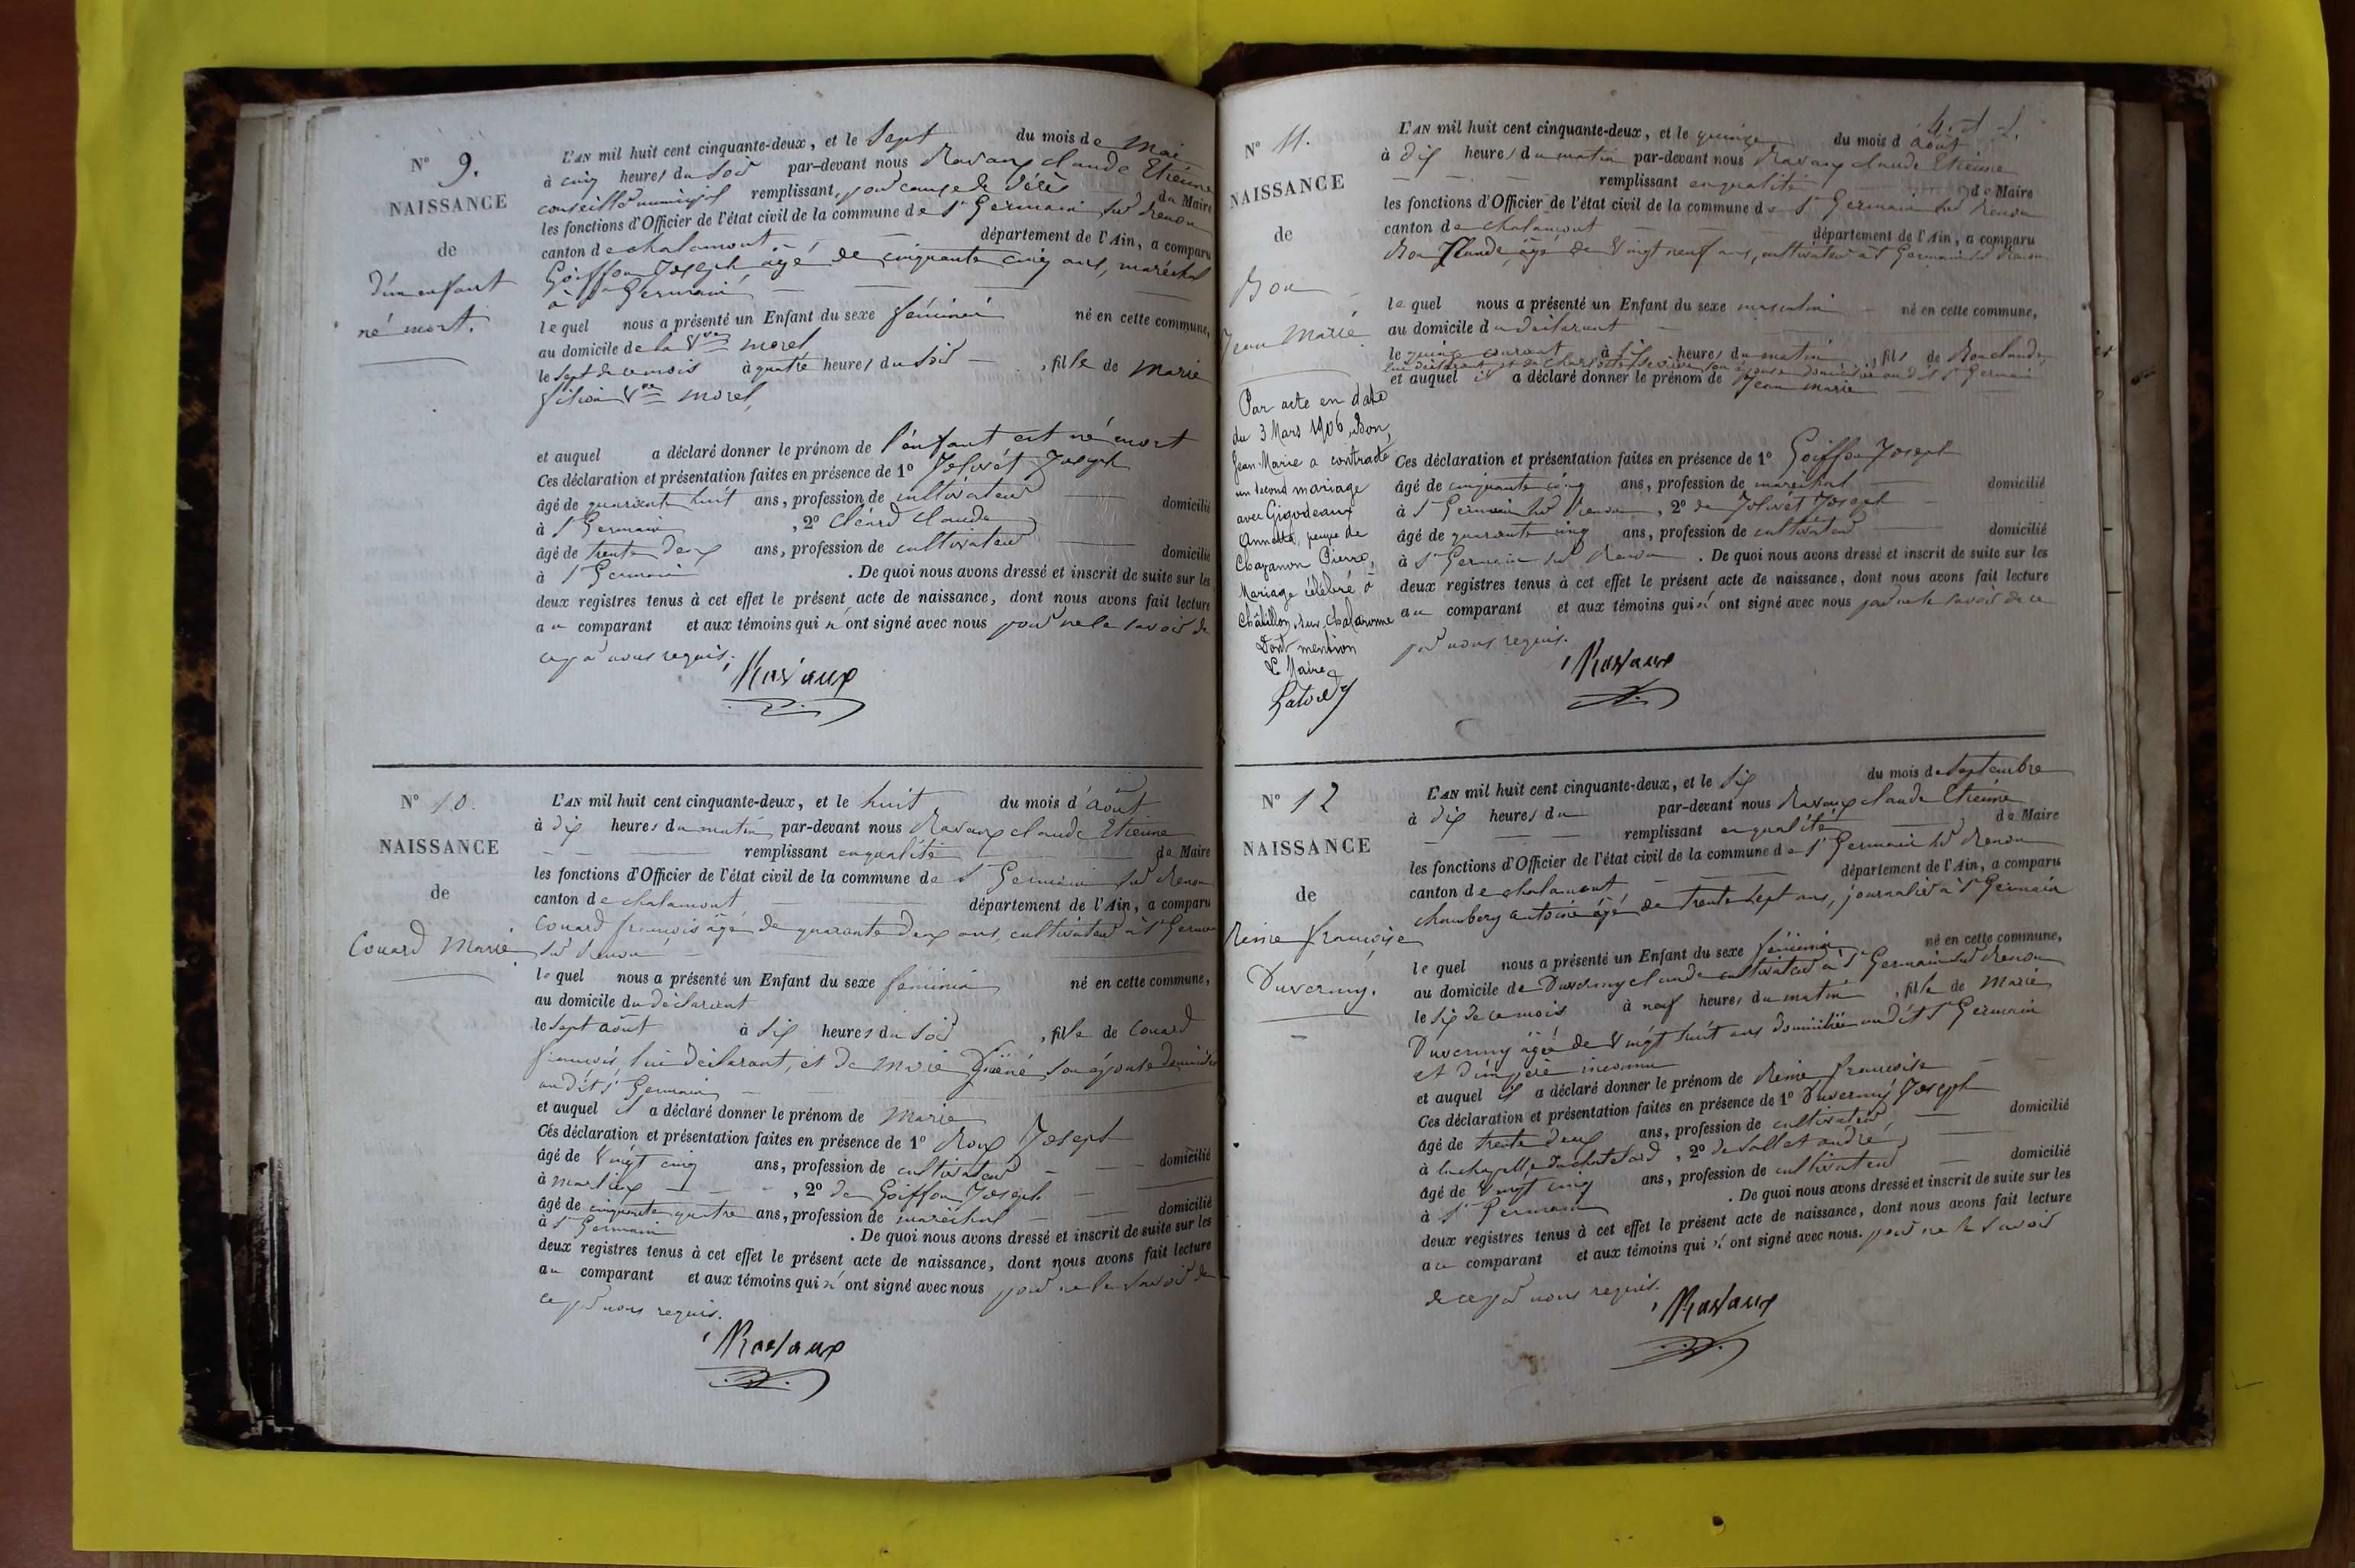 N° 9.
NAISSANCE
de
d'un enfant
né mort.
L'AN mil huit cent cinquante-deux, et le Sept du mois de Mai
à cinq heures du soir par-devant nous Ravaux claude Etienne
conseiller municipal remplissant, pour cause de décès du Maire
les fonctions d'Officier de l'état civil de la commune de St Germain sur Renon
canton de chalamont département de l'Ain, a comparu
Goiffon Joseph, agé de cinquante cinq ans, maréchal
à St Germain
lequel nous a présenté un Enfant du sexe féminin né en cette commune,
au domicile de la Vve morel
le sept de ce mois à quatre heures du soir, fille de Marie
Vve morel
et auquel a déclaré donner le prénom de l'enfant est né mort
Ces déclaration et présentation faites en présence de 1° Jolivet Joseph
âgé de quarante huit ans, profession de cultivateur domicilié
à St Germain, 2° Cléard Claude
âgé de trente deux ans, profession de cultivateur domicilié
à St Germain. De quoi nous avons dressé et inscrit de suite sur les
deux registres tenus à cet effet le présent acte de naissance, dont nous avons fait lecture
au comparant et aux témoins qui n'ont signé avec nous pour ne le savoir de
ce par nous requis.
Ravaux
N° 10.
NAISSANCE
de
Couard Marie
L'AN mil huit cent cinquante-deux, et le huit du mois d'août
à dix heures du matin par-devant nous Ravaux claude Etienne
remplissant en qualité de Maire
les fonctions d'Officier de l'état civil de la commune de St Germain sur Renon
canton de chalamont département de l'Ain, a comparu
Couard françois âgé de quarante deux ans, cultivateur à St Germain
sur Renon
lequel nous a présenté un Enfant du sexe féminin né en cette commune,
au domicile du déclarant
le sept août à six heures du soir, fille de Couard
françois, lui déclarant, et de Marie son épouse domiciliés
au dit St Germain
et auquel il a déclaré donner le prénom de Marie
Ces déclaration et présentation faites en présence de 1° Roux Joseph
âgé de Vingt cinq ans, profession de cultivateur domicilié
à marlieux, 2° de Goiffon Joseph
âgé de cinquante quatre ans, profession de maréchal domicilié
à St Germain. De quoi nous avons dressé et inscrit de suite sur les
deux registres tenus à cet effet le présent acte de naissance, dont nous avons fait lecture
au comparant et aux témoins qui n'ont signé avec nous pour ne le savoir de
ce par nous requis.
Ravaux
N° 11.
NAISSANCE
de
Bon
Jean Marie
Par acte en date
du 3 Mars 1906, Bon,
Jean-Marie a contracté
un second mariage
avec Gigodeaux
Annette, veuve de
Chazanon Pierre,
Mariage célébré à
Châtillon-sur-Chalaronne
Dont mention
Le Maire
L'AN mil huit cent cinquante-deux, et le quinze du mois d'août
à dix heures du matin par-devant nous Ravaux claude Etienne
remplissant en qualité de Maire
les fonctions d'Officier de l'état civil de la commune de St Germain sur Renon
canton de chalamont département de l'Ain, a comparu
Bon Claude, âgé de Vingt neuf ans, cultivateur à St Germain sur Renon
lequel nous a présenté un Enfant du sexe masculin né en cette commune,
au domicile du déclarant
le quinze courant à six heures du matin, fils de Bon claude,
lui déclarant et de son épouse domiciliés au dit St Germain
et auquel il a déclaré donner le prénom de Jean marie
Ces déclaration et présentation faites en présence de 1° Goiffon Joseph
âgé de cinquante cinq ans, profession de maréchal domicilié
à St Germain sur Renon, 2° de Jolivet Joseph
âgé de quarante cinq ans, profession de cultivateur domicilié
à St Germain sur Renon. De quoi nous avons dressé et inscrit de suite sur les
deux registres tenus à cet effet le présent acte de naissance, dont nous avons fait lecture
au comparant et aux témoins qui n'ont signé avec nous pour ne le savoir de ce
par nous requis.
Ravaux
N° 12
NAISSANCE
de
Reine françoise
Duverny.
L'AN mil huit cent cinquante-deux, et le six du mois de Septembre
à dix heures du par-devant nous Ravaux claude Etienne
remplissant en qualité de Maire
les fonctions d'Officier de l'état civil de la commune de St Germain sur Renon
canton de chalamont département de l'Ain, a comparu
chambery antoine âgé de trente sept ans, journalier à St Germain
lequel nous a présenté un Enfant du sexe féminin né en cette commune,
au domicile de Duverny claude cultivateur à St Germain sur Renon
le six de ce mois à neuf heures du matin, fille de Marie
Duverny âgée de Vingt huit ans domiciliée au dit St Germain
et d'un père inconnu
et auquel il a déclaré donner le prénom de Reine françoise
Ces déclaration et présentation faites en présence de 1° Duverny Joseph
âgé de trente deux ans, profession de cultivateur domicilié
à la chapelle du chatelard, 2° de Sallet andré
âgé de Vingt cinq ans, profession de cultivateur domicilié
à St Germain. De quoi nous avons dressé et inscrit de suite sur les
deux registres tenus à cet effet le présent acte de naissance, dont nous avons fait lecture
au comparant et aux témoins qui n'ont signé avec nous. pour ne le savoir
de ce par nous requis.
Ravaux